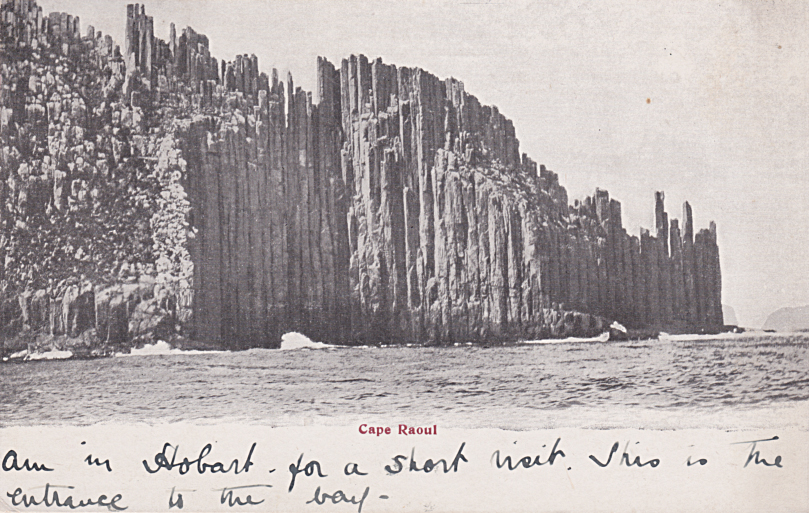 Cape Raoul
am in Hobart. for a short visit. This is the
entrance to the bay-